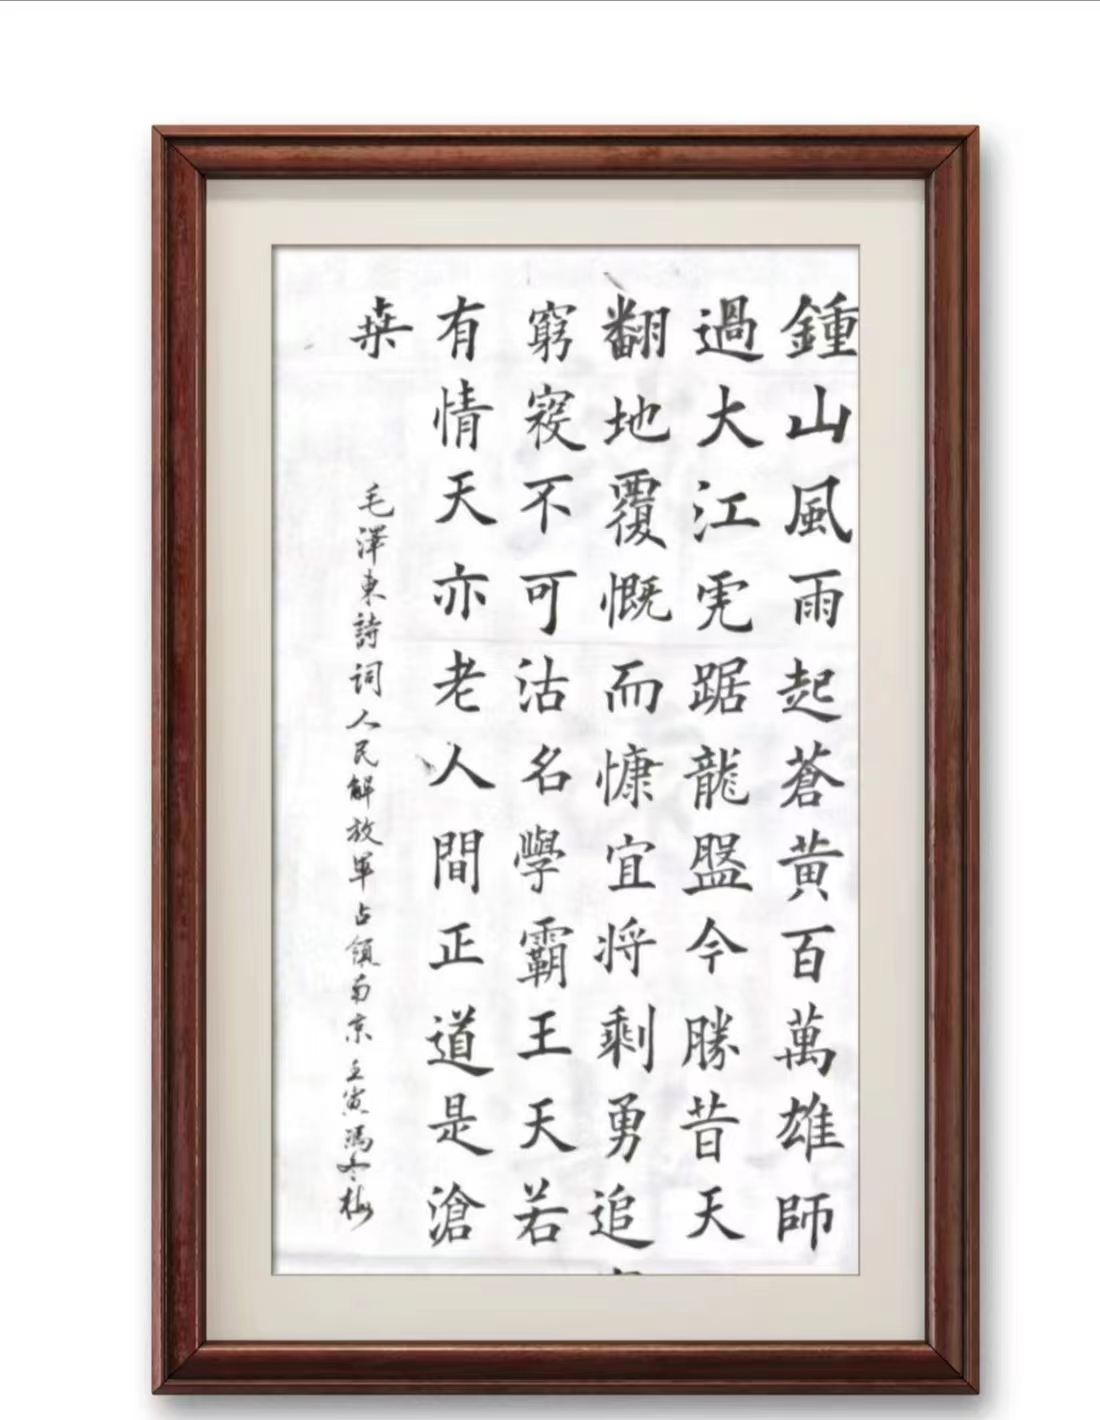 鍾山風雨起蒼黃百萬雄師
過大江虎踞龍盤今勝昔天
翻地覆慨而慷宜将剩勇追
窮寇不可沽名學霸王天若
有情天亦老人間正道是滄
桒
毛澤東詩詞人民解放軍占領南京 壬寅馮冬梅